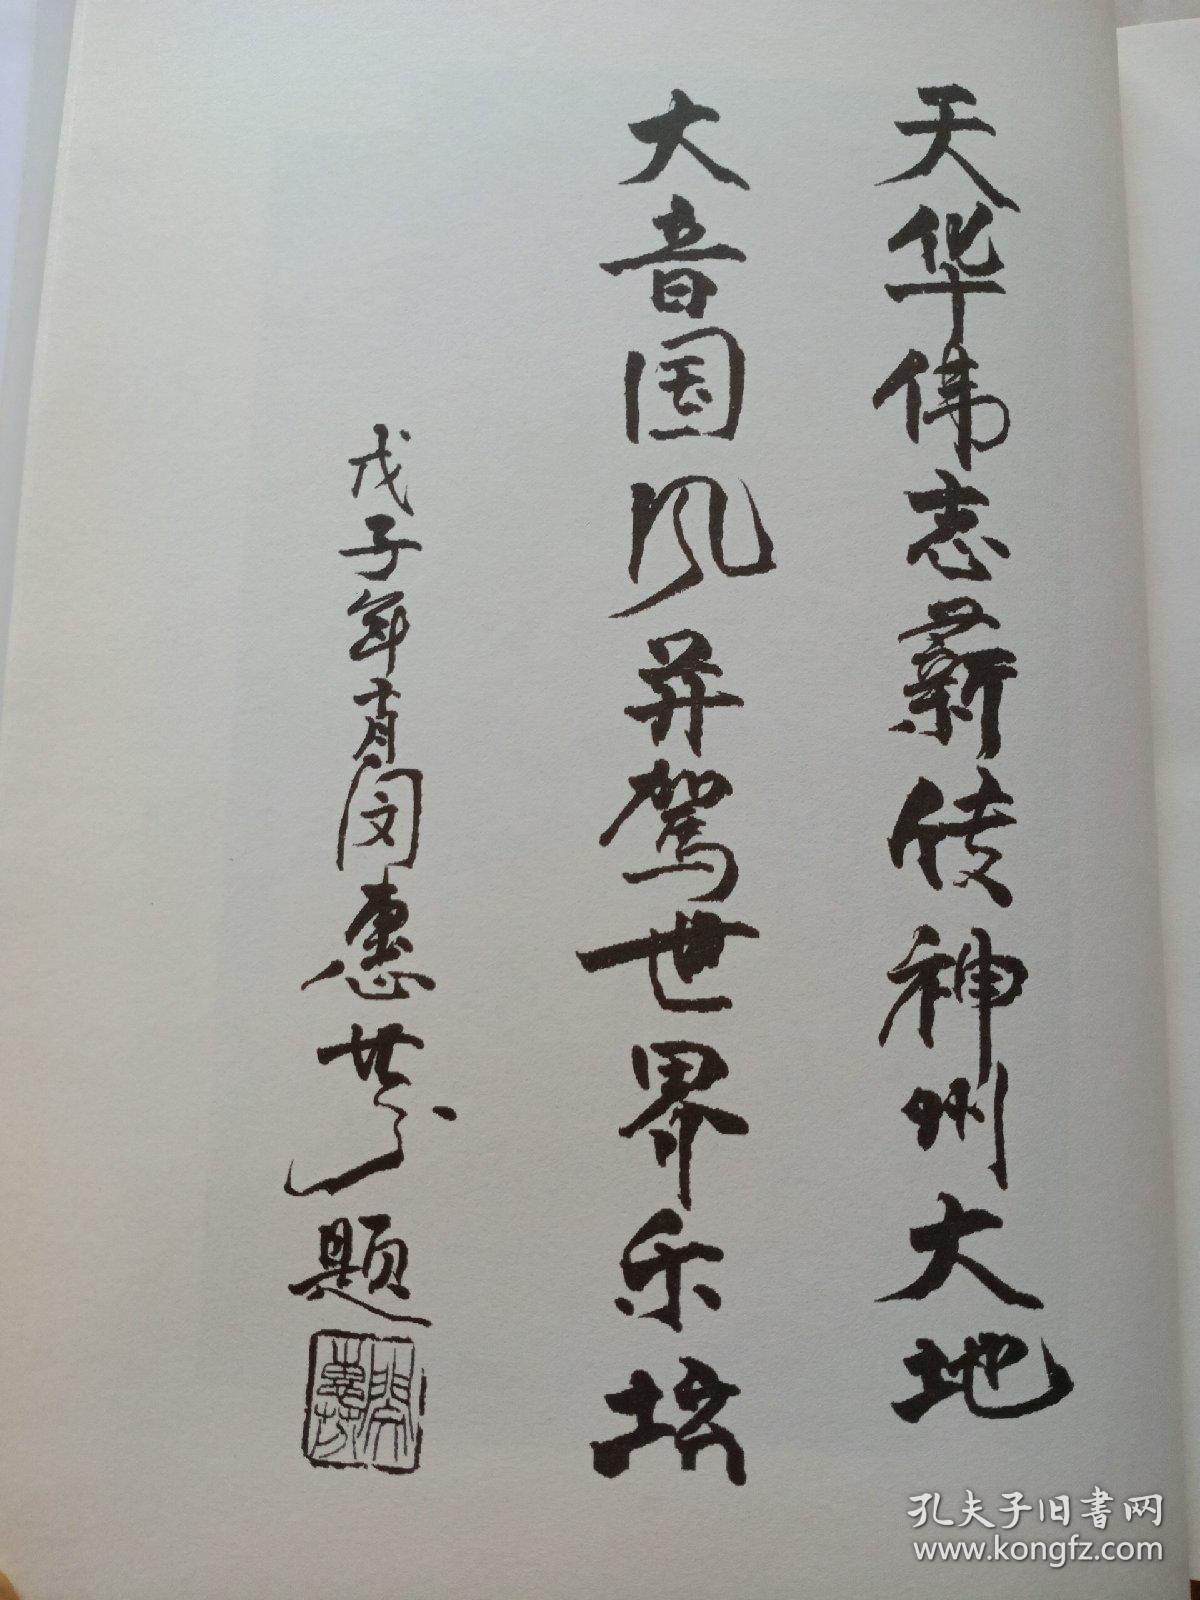 天华伟志薪传神州大地
大音国风并驾世界乐坛
戊子年十月闵惠芬题
闵惠芬
孔夫子旧书网
www.kongfz.com